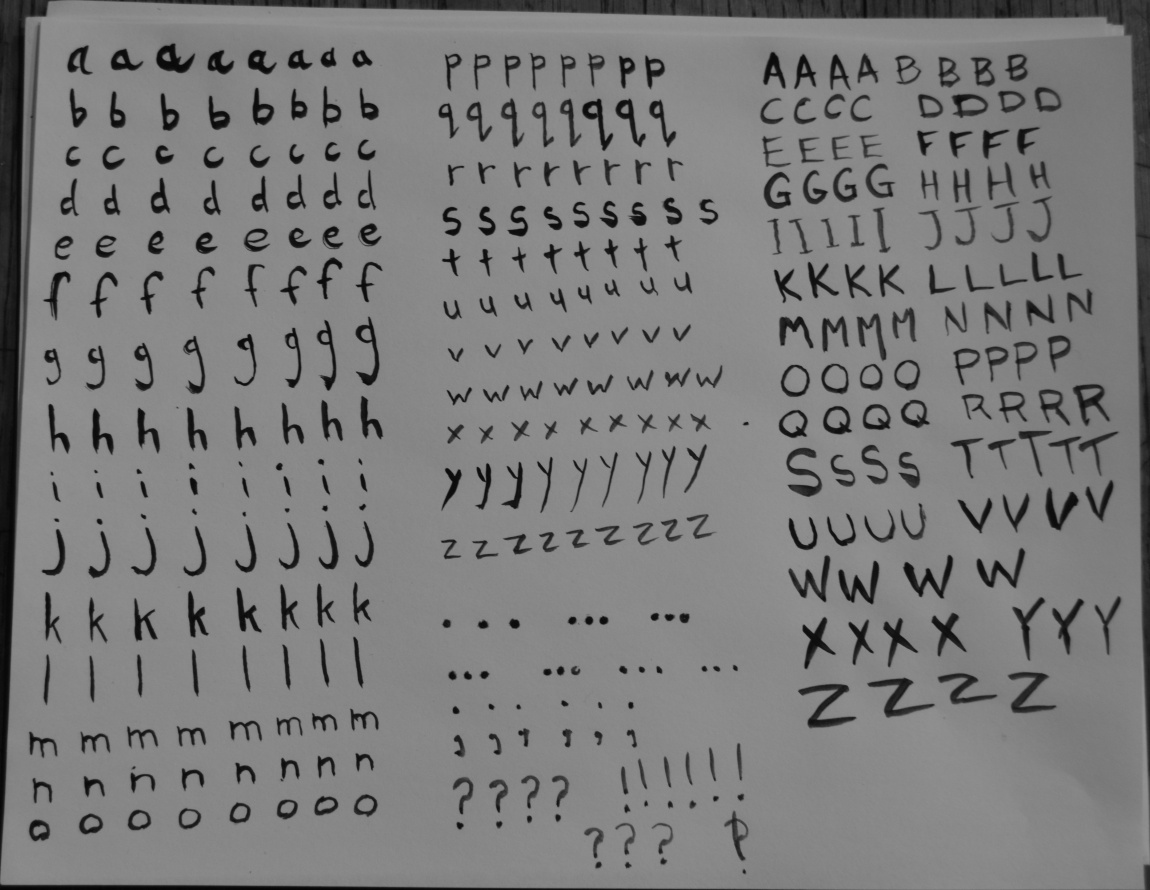 a a a a a a a a
b b b b b b b b
c c c c c c c c
d d d d d d d d
e e e e e e e e
f f f f f f f f
g g g g g g g g
h h h h h h h h
i i i i i i i i
j j j j j j j j
k k k k k k k k
l l l l l l l l
m m m m m m m m
n n n n n n n n
o o o o o o o o
p p p p p p p p
q q q q q q q q
r r r r r r r r
s s s s s s s s s
t t t t t t t t
u u u u u u u u
v v v v v v v v
w w w w w w w w
x x x x x x x x .
y y y y y y y y y
z z z z z z z z z
... ... ...
... ... ... ...
; ; ; ; ; ;
? ? ? ? ! ! ! ! ! !
? ? ?
A A A A B B B B
C C C C D D D D
E E E E F F F F
G G G G H H H H
I I I I I J J J J
K K K K L L L L L
M M M M N N N N
O O O O P P P P
Q Q Q Q R R R R
S S S S T T T T T
U U U U V V V V
W W W W
X X X X Y Y Y
Z Z Z Z